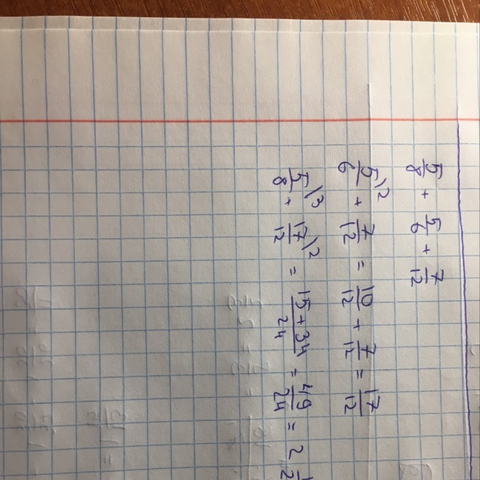 5/8 + 5/6 + 7/12
5\2/6 + 7/12 = 10/12 + 7/12 = 17/12
5\3/8 + 17\2/12 = 15+34/24 = 49/24 = 2